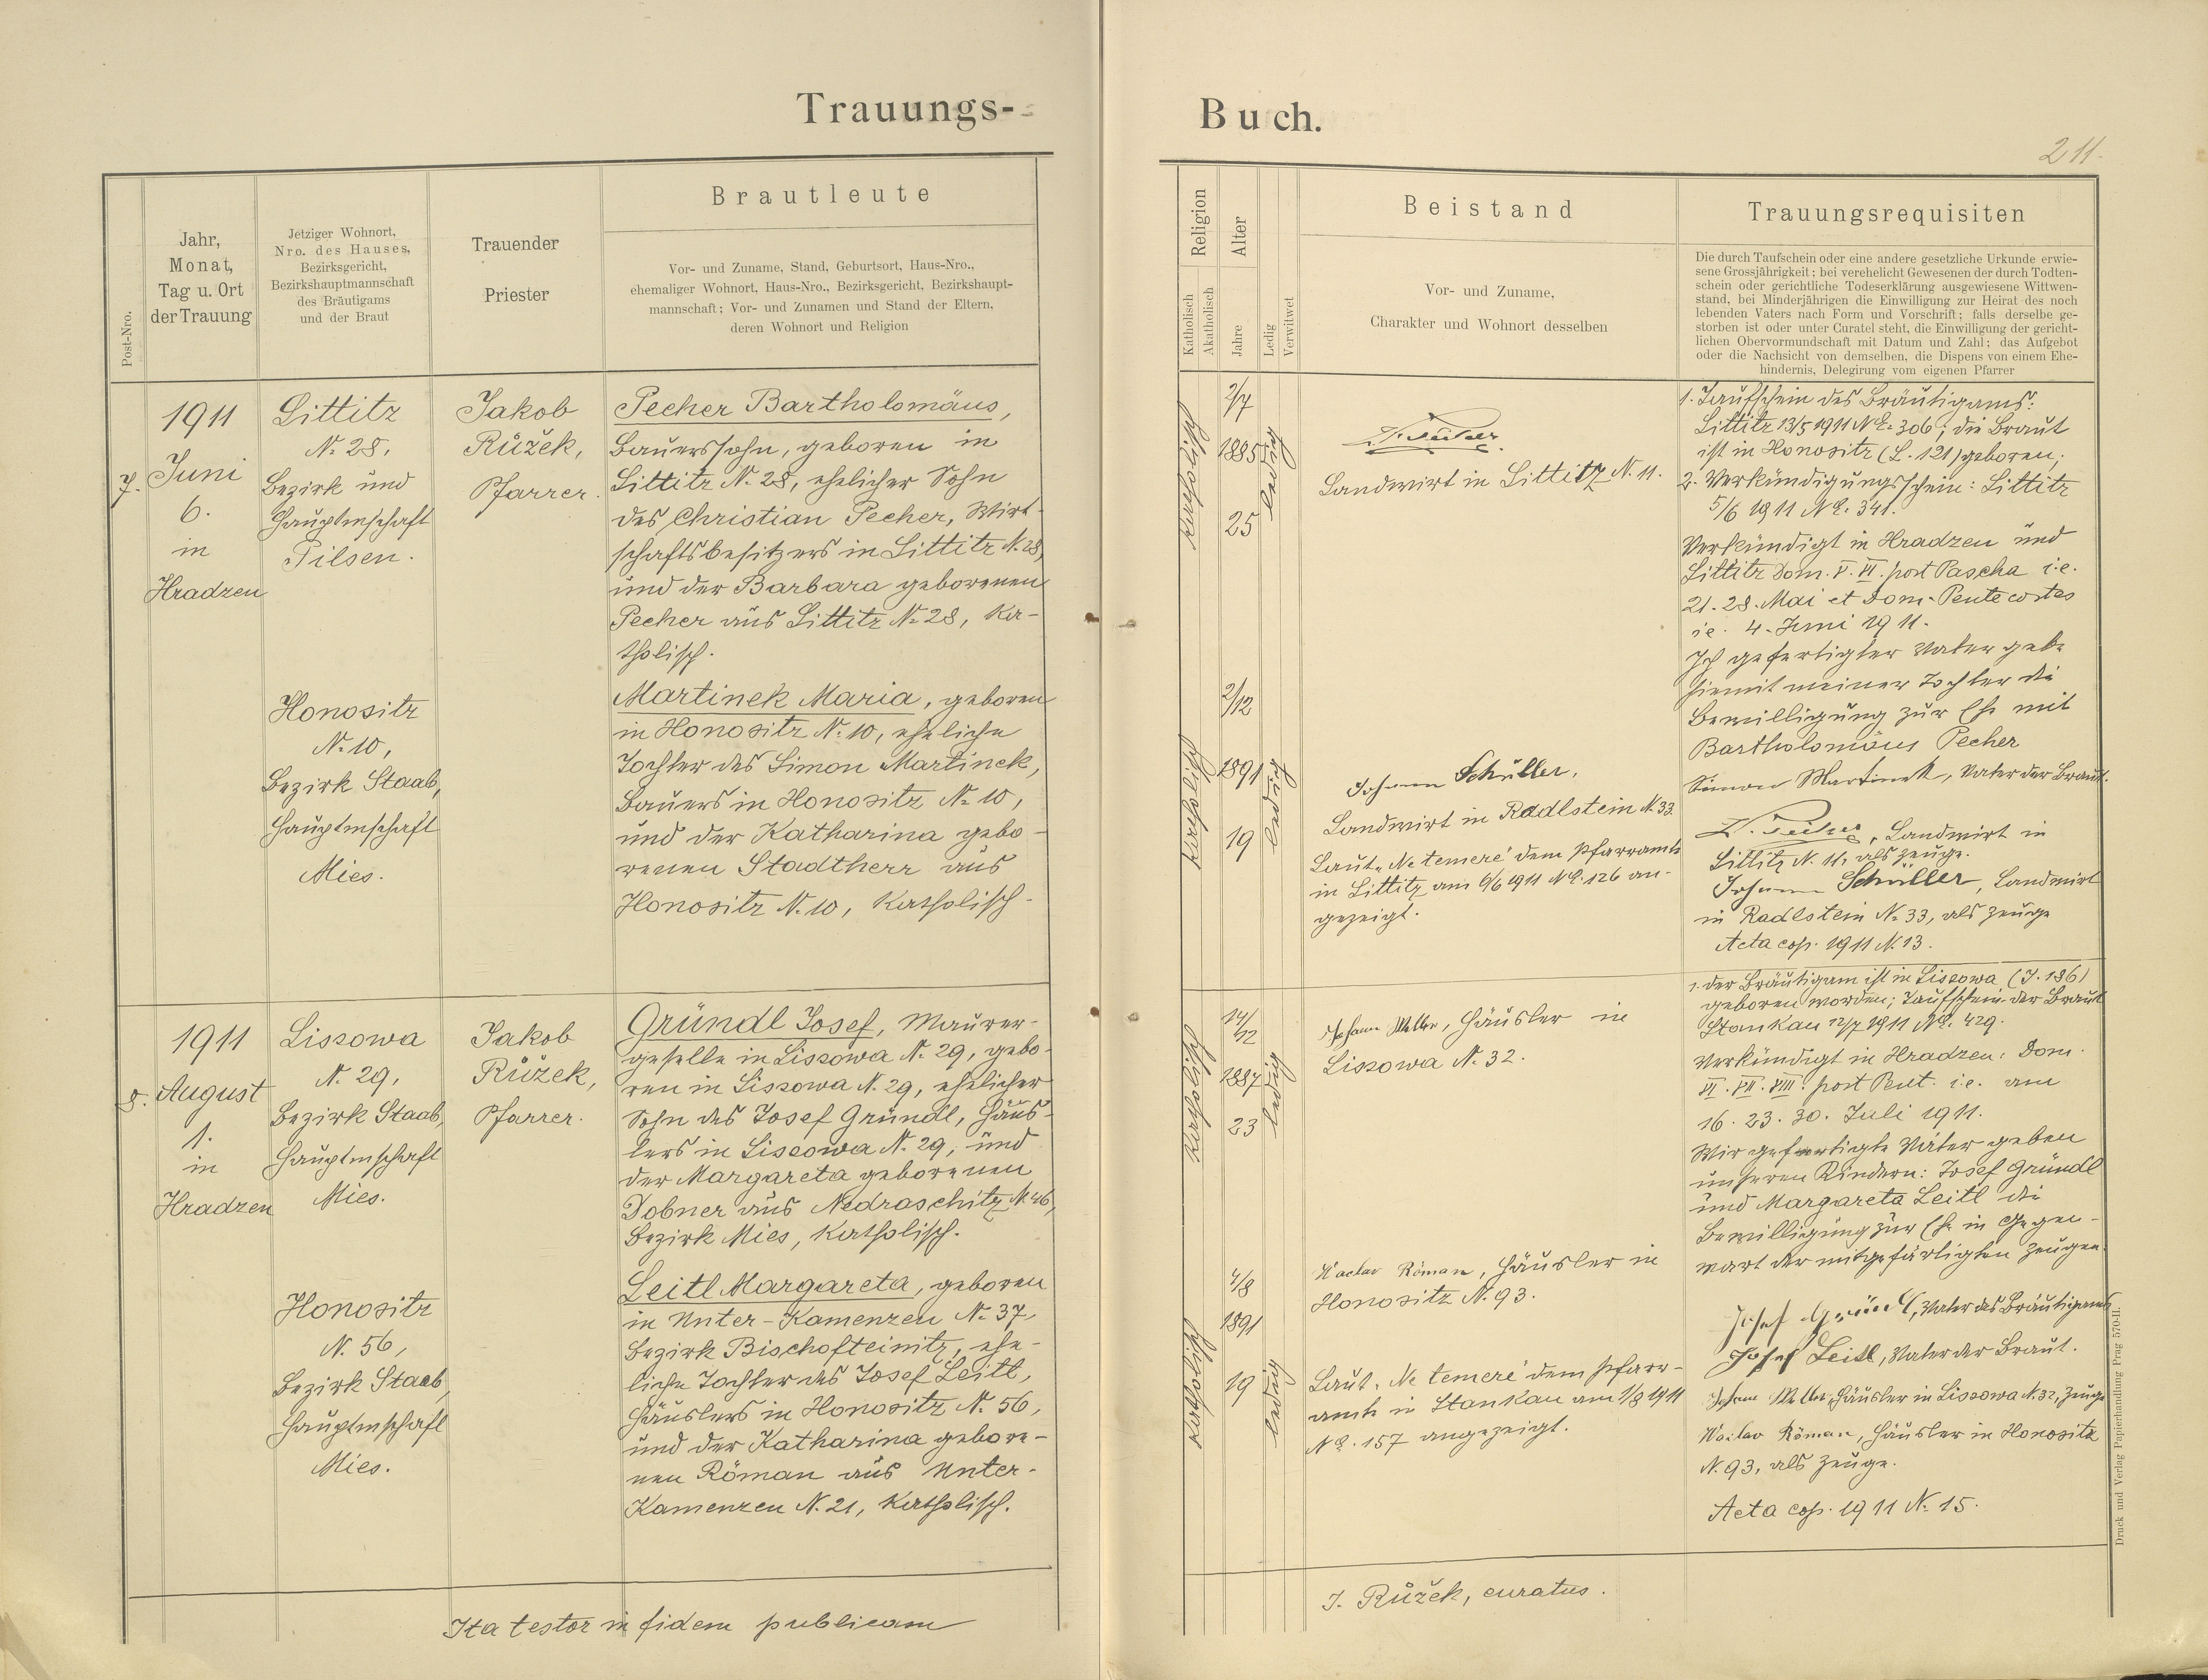 Trauungs-
Buch.
211.
Post-Nro.
Jahr,
Monat,
Tag u. Ort
der Trauung
Jetziger Wohnort,
Nro. des Hauses,
Bezirksgericht,
Bezirkshauptmannschaft
des Bräutigams
und der Braut
Trauender
Priester
Brautleute
Vor- und Zuname, Stand, Geburtsort, Haus-Nro.,
ehemaliger Wohnort, Haus-Nro., Bezirksgericht, Bezirkshaupt-
mannschaft; Vor- und Zunamen und Stand der Eltern,
deren Wohnort und Religion
Religion
Katholisch
Akatholisch
Alter
Jahre
Ledig
Verwitwet
Beistand
Vor- und Zuname,
Charakter und Wohnort desselben
Trauungsrequisiten
Die durch Taufschein oder eine andere gesetzliche Urkunde erwie-
sene Grossjährigkeit; bei verehelicht Gewesenen der durch Todten-
schein oder gerichtliche Todeserklärung ausgewiesene Wittwen-
stand, bei Minderjährigen die Einwilligung zur Heirat des noch
lebenden Vaters nach Form und Vorschrift; falls derselbe ge-
storben ist oder unter Curatel steht, die Einwilligung der gericht-
lichen Obervormundschaft mit Datum und Zahl; das Aufgebot
oder die Nachsicht von demselben, die Dispens von einem Ehe-
hindernis, Delegirung vom eigenen Pfarrer
7.
1911
Juni
6.
in
Hradzen
Littitz
N. 28,
Bezirk und
Hauptmschaft
Pilsen.
Jakob
Růžek,
Pfarrer.
Pecher Bartholomäus,
Bauerssohn, geboren in
Littitz N. 28, ehelicher Sohn
des Christian Pecher, Wirt-
schaftsbesitzers in Littitz N. 28,
und der Barbara geborenen
Pecher aus Littitz N. 28, ka-
tholisch.
Honositz
N. 10,
Bezirk Staab,
Hauptmschaft
Mies.
Martinek Maria, geboren
in Honositz N. 10, eheliche
Tochter des Simon Martinek,
Bauers in Honositz N. 10,
und der Katharina gebo-
renen Stadtherr aus
Honositz N. 10, katholisch.
katholisch
2/7
1885
25
ledig
Landwirt in Littitz N. 11.
katholisch
2/12
1891
19
ledig
Johann Schüller,
Landwirt in Radlstein N. 33.
Laut „Ne temere“ dem Pfarramte
in Littitz am 6/6 1911 NE. 126 an-
gezeigt.
1. Taufschein des Bräutigams:
Littitz 13/5 1911 NE. 306; die Braut
ist in Honositz (L. 121) geboren;
2. Verkündigungsschein: Littitz
5/6 1911 NE. 341.
Verkündigt in Hradzen und
Littitz Dom. V. VI. post Pascha i.e.
21. 28. Mai et Dom. Pentecostes
i.e. 4. Juni 1911.
Ich gefertigter Vater gebe
hiemit meiner Tochter die
Bewilligung zur Ehe mit
Bartholomäus Pecher
Simon Martinek, Vater der Braut.
, Landwirt in
Littitz N. 11, als Zeuge.
Johann Schüller, Landwirt
in Radlstein N. 33, als Zeuge
Acta cop. 1911 N. 13.
8.
1911
August
1.
in
Hradzen
Lissowa
N. 29,
Bezirk Staab,
Hauptmschaft
Mies.
Jakob
Růžek,
Pfarrer.
Gründl Josef, Maurer-
geselle in Lissowa N. 29, gebo-
ren in Lissowa N. 29, ehelicher
Sohn des Josef Gründl, Häus-
lers in Lissowa N. 29, und
der Margareta geborenen
Dobner aus Nedraschitz N. 46,
Bezirk Mies, katholisch.
Honositz
N. 56,
Bezirk Staab
Hauptmschaft
Mies.
Leitl Margareta, geboren
in Unter-Kamenzen N. 37,
Bezirk Bischofteinitz, ehe-
liche Tochter des Josef Leitl,
Häuslers in Honositz N. 56,
und der Katharina gebore-
nen Röman aus Unter-
Kamenzen N. 21, katholisch.
katholisch
14/12
1887
23
ledig
Johann , Häusler in
Lissowa N. 32.
katholisch
4/8
1891
19
ledig
Röman, Häusler in
Honositz N. 93.
Laut „Ne temere“ dem Pfarr-
amte in Stankau am 1/8 1911
NE. 157 angezeigt.
1. der Bräutigam ist in Lissowa (J. 186)
geboren worden; Taufschein der Braut
Stankau 12/7 1911 NE. 429.
Verkündigt in Hradzen: Dom.
VI. VII. VIII. post Pent. i.e. am
16. 23. 30. Juli 1911.
Wir gefertigte Väter geben
unseren Kindern: Josef Gründl
und Margareta Leitl die
Bewilligung zur Ehe in Gegen-
wart der mitgefärtigten Zeugen.
Josef Gründl, Vater des Bräutigams
Josef Leitl, Vater der Braut.
Johann , Häusler in Lissowa N. 32, Zeuge
Röman, Häusler in Honositz
N. 93, als Zeuge.
Acta cop. 1911 N. 15.
Ita testor in fidem publicam
J. Růžek, curatus.
Druck und Verlag Papierhandlung Prag 570-II.